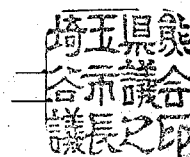 埼玉県熊
谷市議会
議長之印